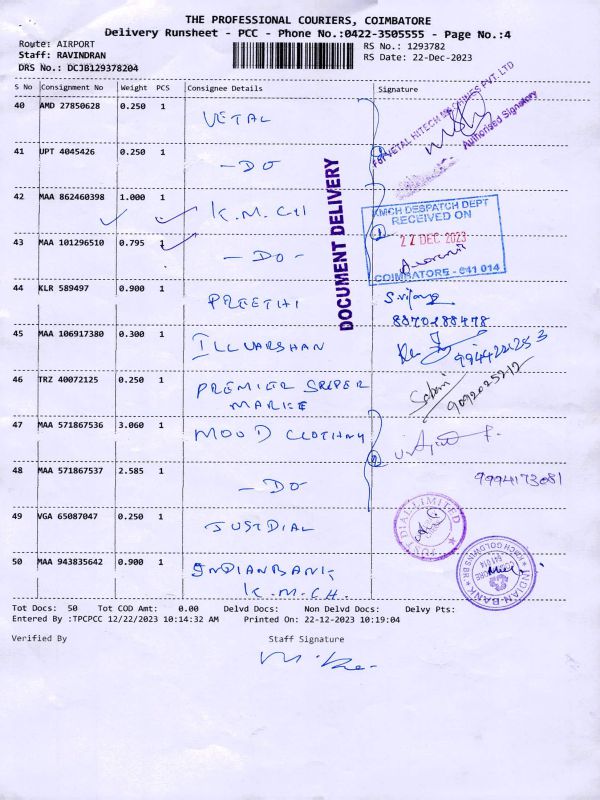 THE PROFESSIONAL COURIERS, COIMBATORE
Delivery Runsheet - PCC - Phone No.:0422-3505555 - Page No.:4
Route: AIRPORT
RS No.: 1293782
Staff: RAVINDRAN
RS Date: 22-Dec-2023
DRS No.: DCJB129378204
S No Consignment No Weight PCS Consignee Details Signature
40 AMD 27850628 0.250 1 VETAL
For VETAL HITECH MACHINES PVT. LTD
Authorised Signatory
41 UPT 4045426 0.250 1 -DO
42 MAA 862460398 1.000 1 K.M.CH
DOCUMENT DELIVERY
KMCH DESPATCH DEPT
RECEIVED ON
22 DEC 2023
COIMBATORE - 641 014
43 MAA 101296510 0.795 1 -DO-
44 KLR 589497 0.900 1 PREETHI
8870188478
45 MAA 106917380 0.300 1 ILLVARSHAN
46 TRZ 40072125 0.250 1 PREMIER
9092025212
47 MAA 571867536 3.060 1 MOOD CLOTHING
48 MAA 571867537 2.585 1 -DO
9994173081
49 VGA 65087047 0.250 1 JUSTDIAL
DIAL LIMITED
JUST
50 MAA 943835642 0.900 1 INDIANBANK
K.M.CH.
INDIAN-BANK
KMCH GOLDWINS BR
Tot Docs: 50 Tot COD Amt: 0.00 Delvd Docs: Non Delvd Docs: Delvy Pts:
Entered By :TPCPCC 12/22/2023 10:14:32 AM Printed On: 22-12-2023 10:19:04
Verified By Staff Signature